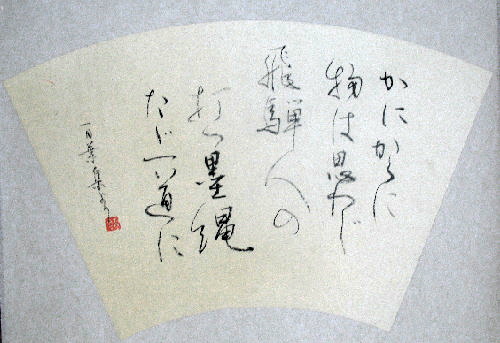 かにかくに
物は思わじ
飛驒人の
打つ墨縄
ただ一道に
万葉集より